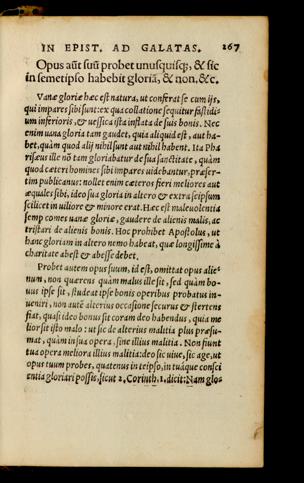 IN EPIST. AD GALATAS. 167
Opus aūt suū probet unusquisq;, & sic
in semetipso habebit gloriā, & non, &c.
Vanæ gloriæ hæc est natura, ut conferat se cum ijs,
qui impares sibi sunt: ex qua collatione sequitur fastidi-
um inferioris, & uessica ista inflata de suis bonis. Nec
enim uana gloria tam gaudet, quia aliquid est, aut ha-
bet, quàm quod alij nihil sunt aut nihil habent. Ita Pha
risæus ille nō tam gloriabatur de sua sanctitate, quàm
quod cæteri homines sibi impares uidebantur, præser-
tim publicanus: nollet enim cæteros fieri meliores aut
æquales sibi, ideo sua gloria in altero & extra seipsum
scilicet in uiliore & minore erat. Hæc est maleuolentia
semp comes uanæ gloriæ, gaudere de alienis malis, ac
tristari de alienis bonis. Hoc prohibet Apostolus, ut
hanc gloriam in altero nemo habeat, quæ longissimè à
charitate abest & abesse debet.
Probet autem opus suum, id est, omittat opus alie-
num, non quærens quàm malus ille sit, sed quàm bo-
nus ipse sit, studeat ipse bonis operibus probatus in-
ueniri, non autē alterius occasione securus & stertens
fiat, quasi ideo bonus sit coram deo habendus, quia me
lior sit isto malo: ut sic de alterius malitia plus præsu-
mat, quàm in sua opera, sine illius malitia. Non fiunt
tua opera meliora illius malitia: deo sic uiue, sic age, ut
opus tuum probes, quatenus in teipso, in tuáque consci
entia gloriari possis, sicut 2. Corinth. 1. dicit: Nam glo-